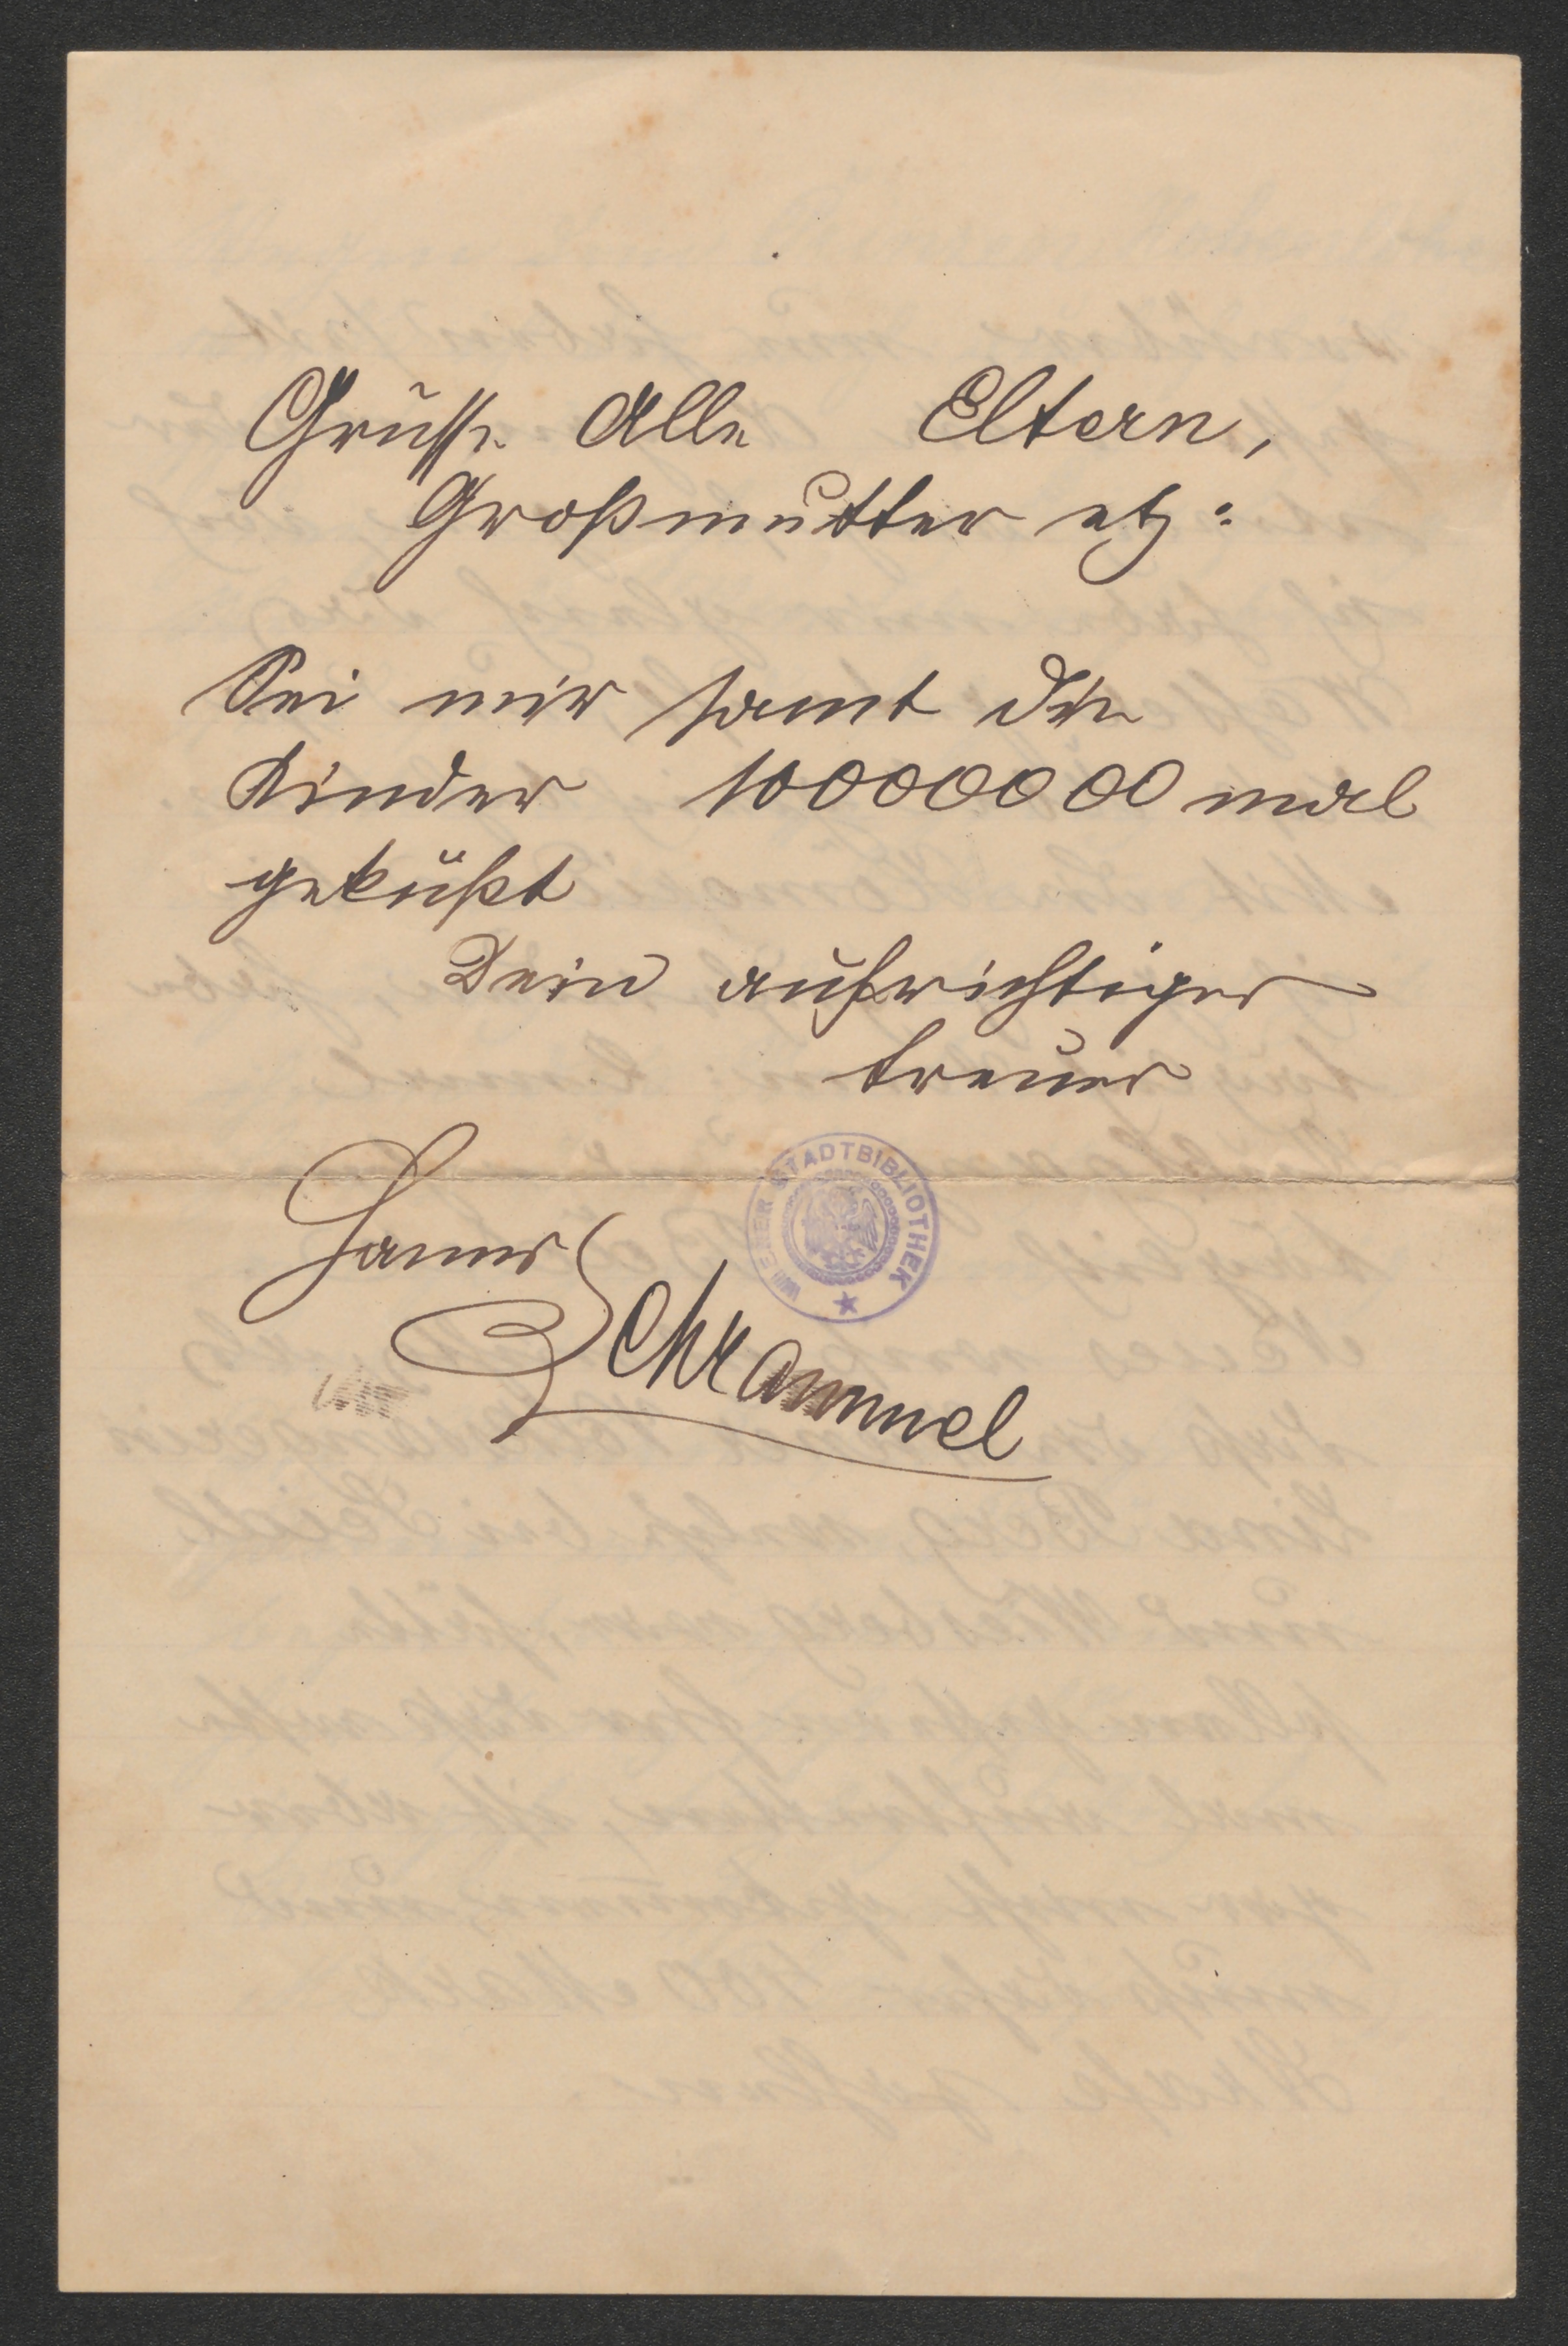 Grüsse Alle Eltern,
Großmutter etz:
Sei mir samt die
Kinder 10000000 mal
geküßt
Dein aufrichtiger
treuer
Hanns
Schrammel
WIENER STADTBIBLIOTHEK